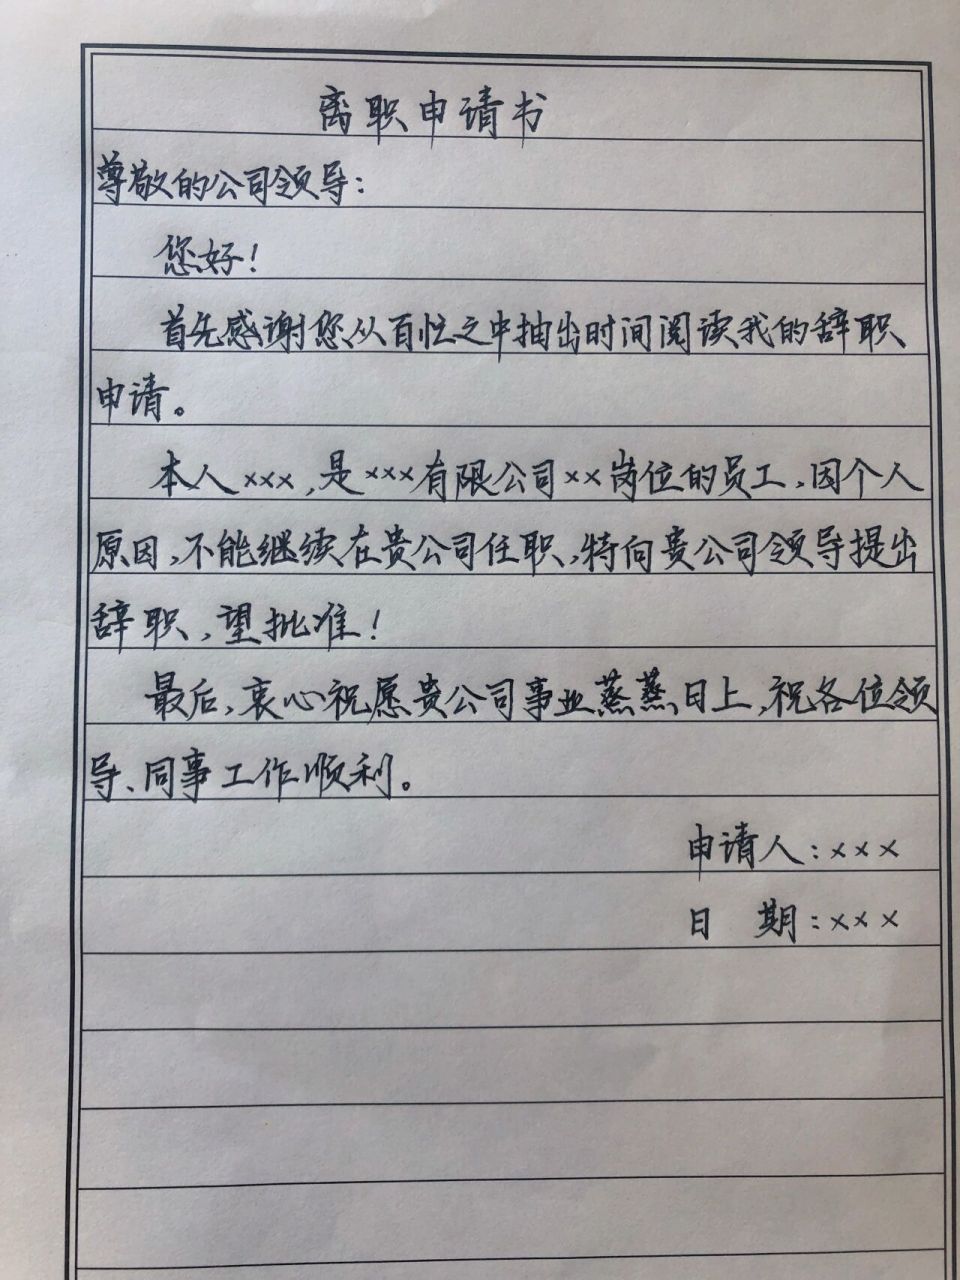 离职申请书
尊敬的公司领导：
您好！
首先感谢您从百忙之中抽出时间阅读我的辞职
申请。
本人×××，是×××有限公司××岗位的员工，因个人
原因，不能继续在贵公司任职，特向贵公司领导提出
辞职，望批准！
最后，衷心祝愿贵公司事业蒸蒸日上，祝各位领
导、同事工作顺利。
申请人：×××
日 期：×××